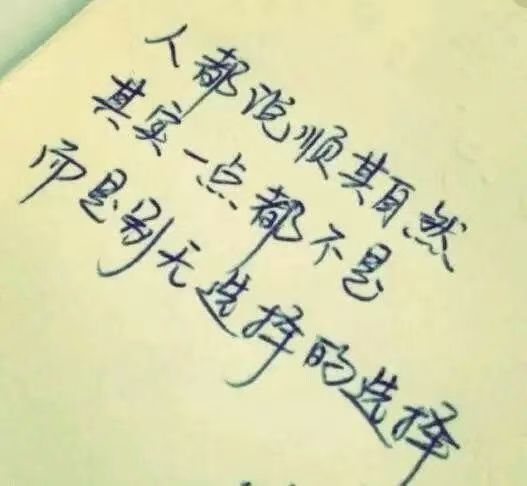 人都说顺其自然
其实一点都不是
而是别无选择的选择